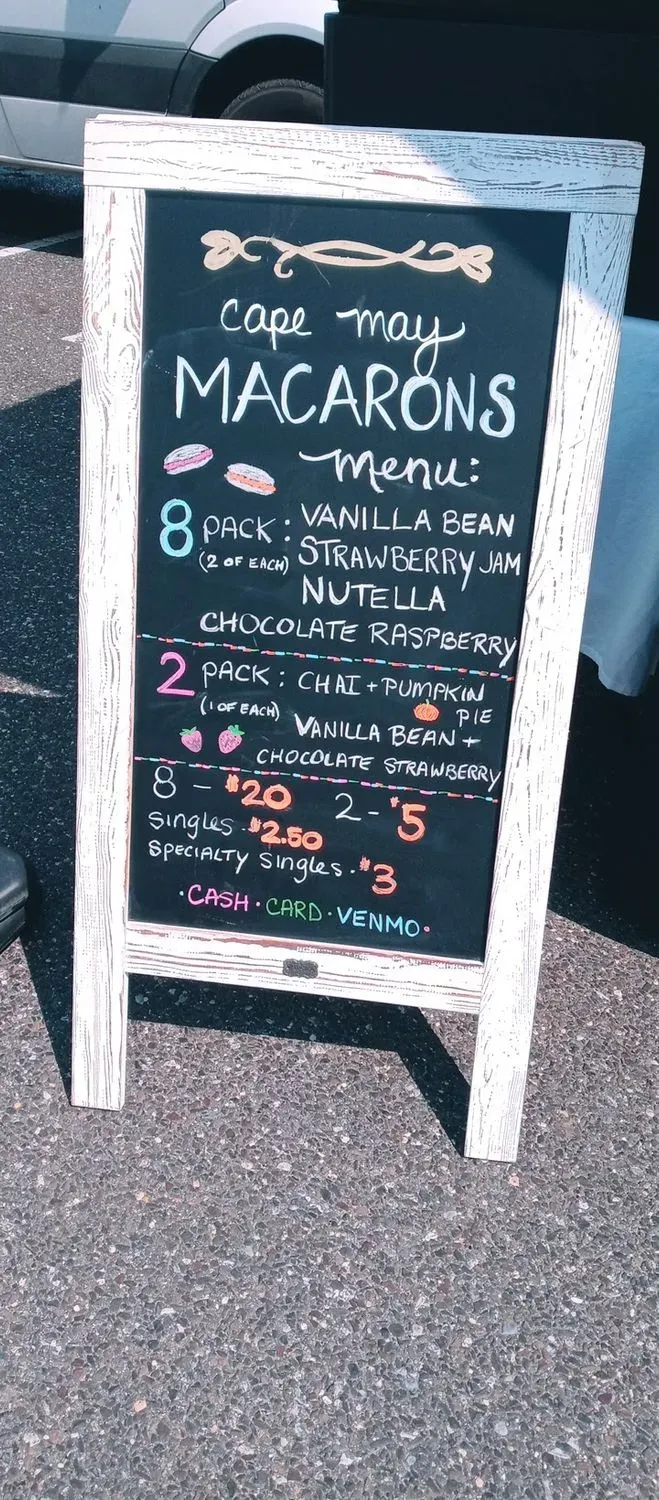 cape may
MACARONS
menu:
8 PACK: VANILLA BEAN
(2 OF EACH) STRAWBERRY JAM
NUTELLA
CHOCOLATE RASPBERRY
2 PACK: CHAI + PUMPKIN
(1 OF EACH) PIE
VANILLA BEAN +
CHOCOLATE STRAWBERRY
8 - $20 2 - $5
Singles - $2.50
SPECIALTY Singles - $3
·CASH·CARD·VENMO·